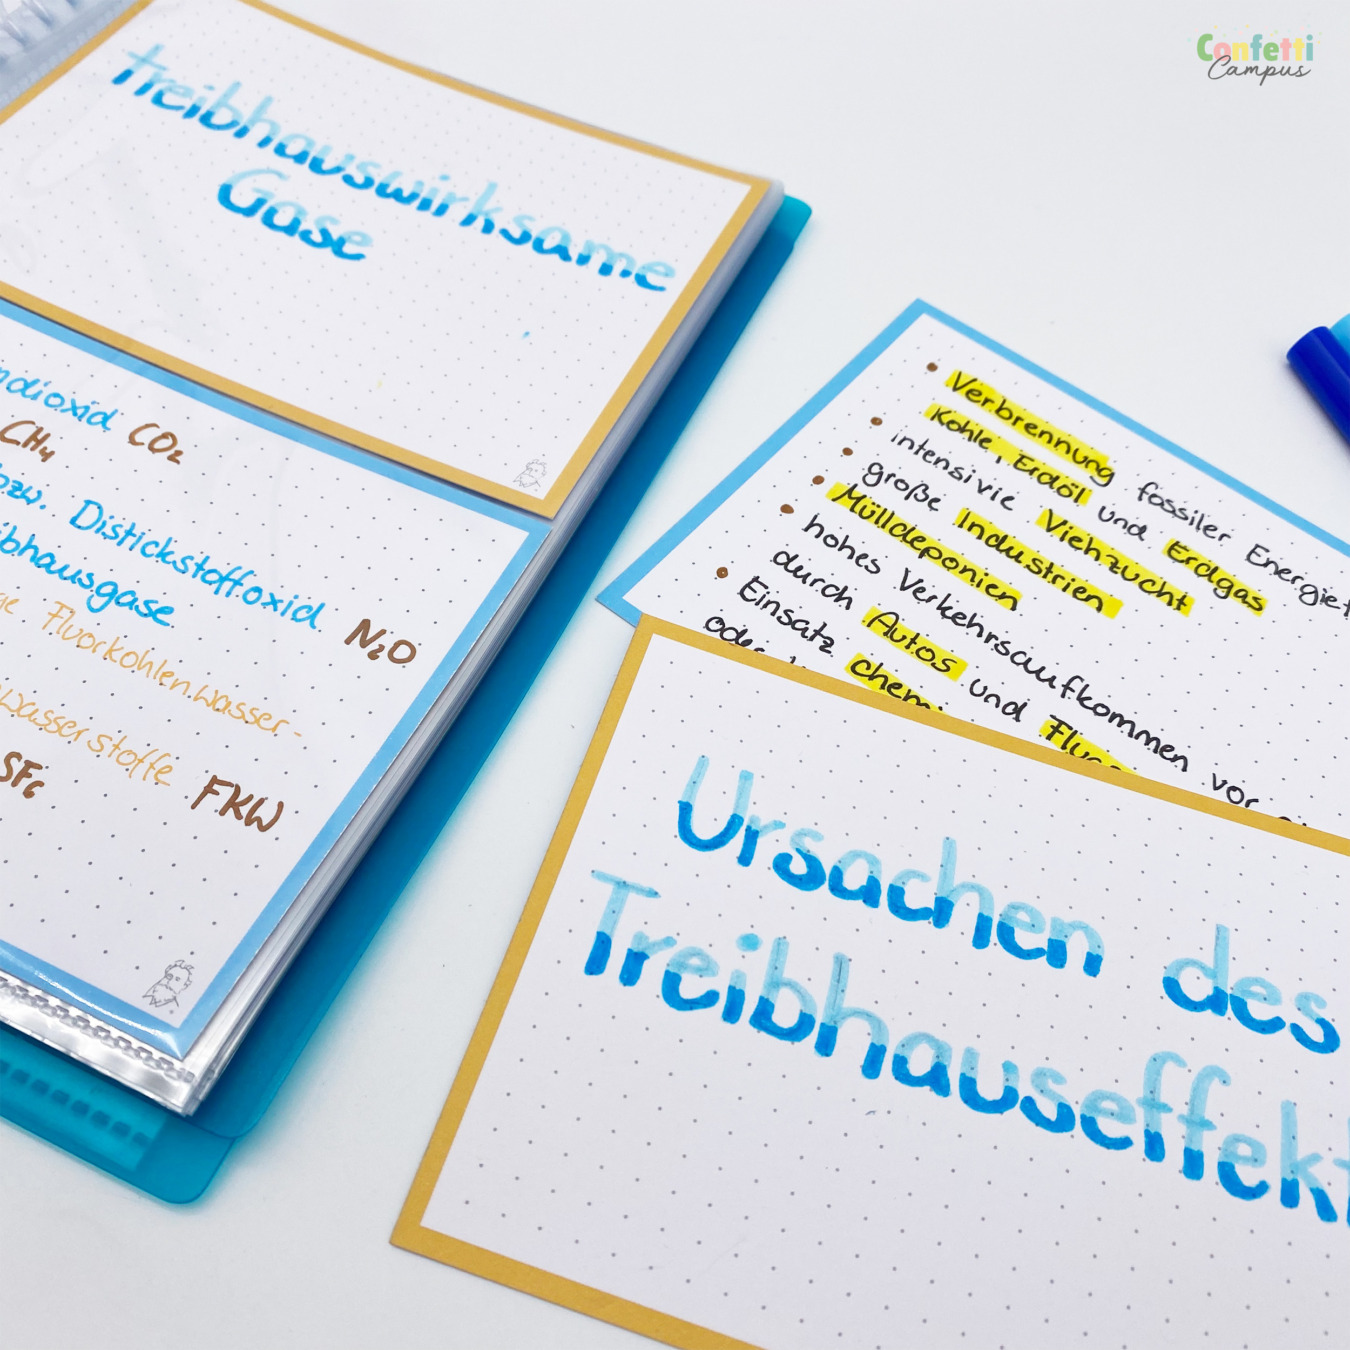 Confetti
Campus
treibhauswirksame
Gase
CO₂
CH₄
bzw. Distickstoffoxid N₂O
Fluorkohlenwasser-
FKW
SF₆
Verbrennung fossiler
Kohle, Erdöl und Erdgas
intensivie Viehzucht
große Industrien
Mülldeponien
hohes Verkehrsaufkommen vor
durch Autos und
Einsatz
Ursachen des
Treibhauseffekt